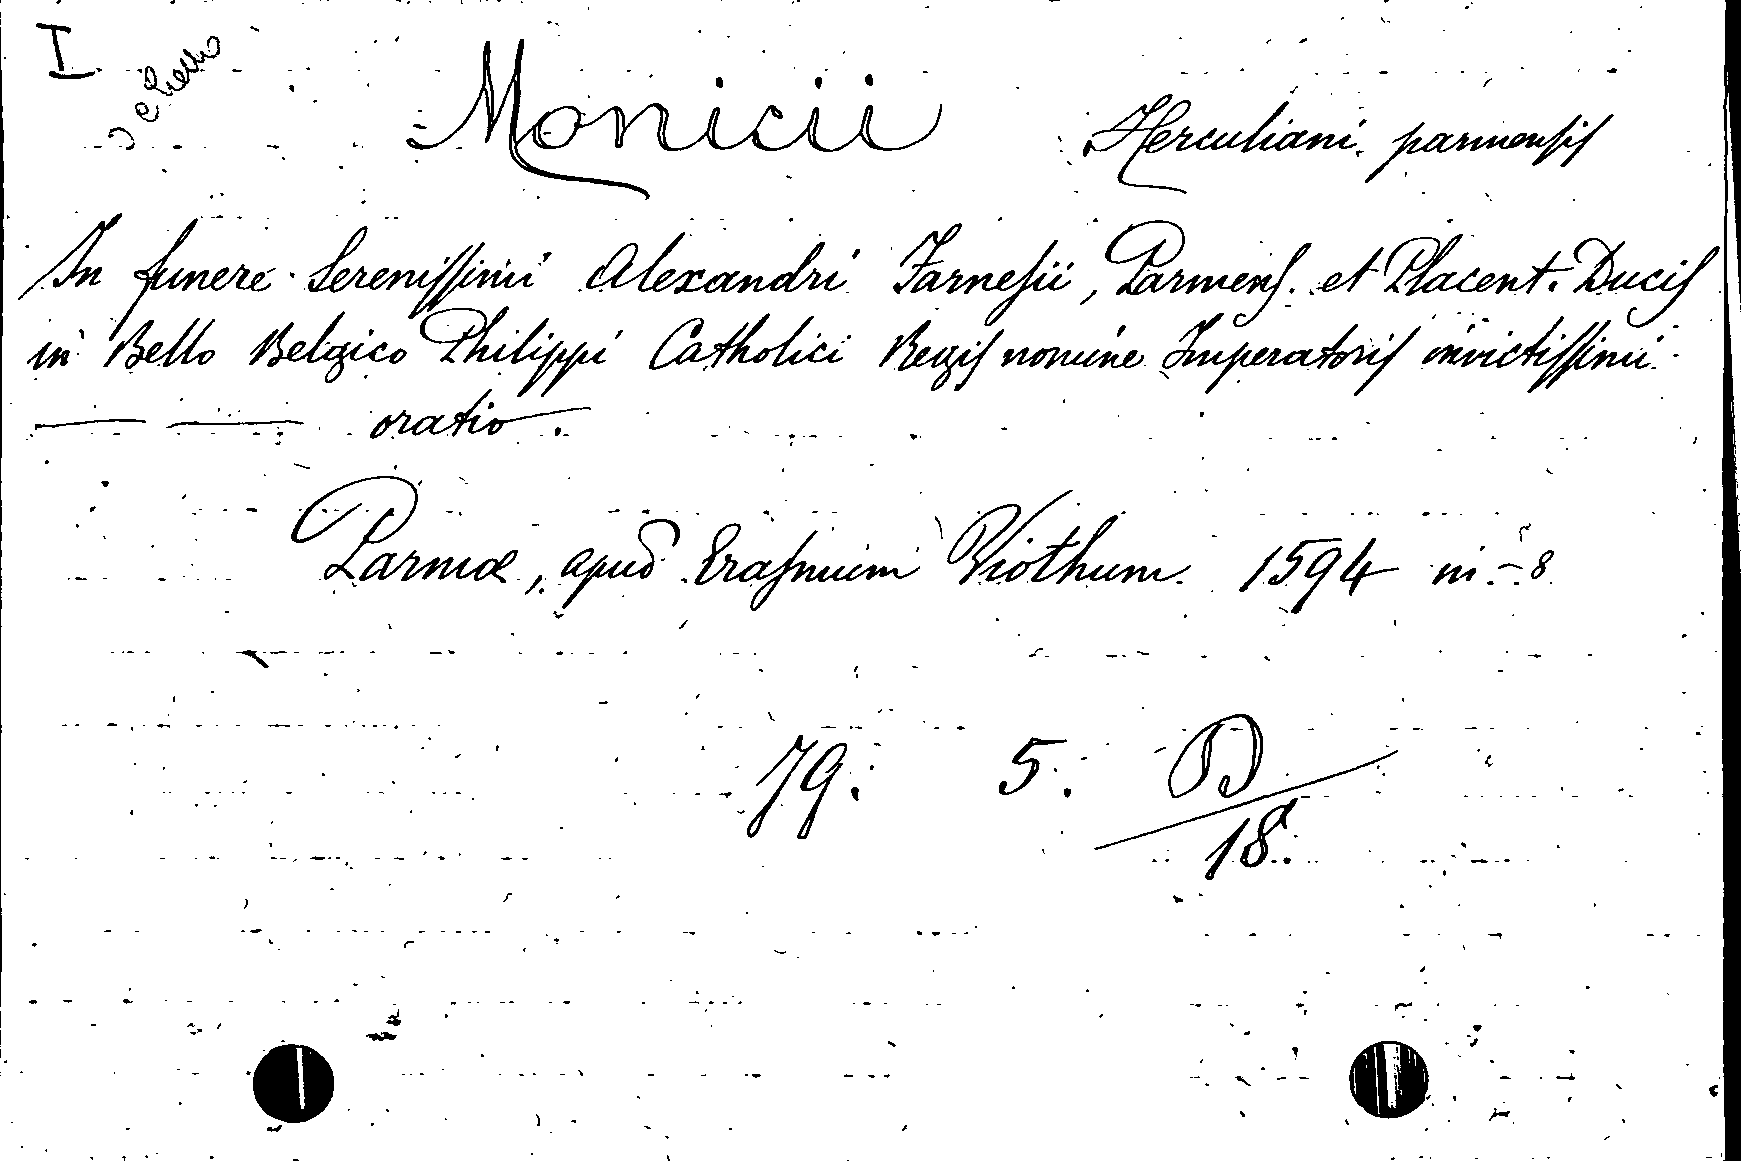 I
Monicii Herculiani parmensis
In funere Serenissimi Alexandri Farnesii, Parmens. et Placent. Ducis
in Bello Belgico Philippi Catholici Regis nomine Imperatoris invictissimi
— — oratio.
Parmæ, apud Erasmum Viothum. 1594 in-8
79. 5. B
18.